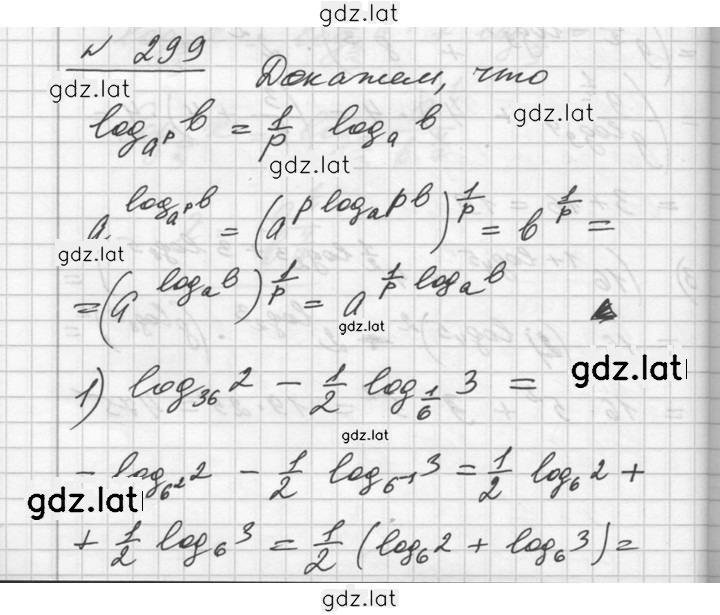 gdz.lat
№ 299 Докажем, что
gdz.lat gdz.lat
log_{a^p} b = 1/p log_a b
gdz.lat
a^{log_{a^p} b} = (a^{p log_{a^p} b})^{1/p} = b^{1/p} =
gdz.lat
= (a^{log_a b})^{1/p} = a^{1/p log_a b}
gdz.lat
gdz.lat
1) log_{36} 2 - 1/2 log_{1/6} 3 =
gdz.lat
= log_{6^2} 2 - 1/2 log_{6^{-1}} 3 = 1/2 log_6 2 +
gdz.lat
+ 1/2 log_6 3 = 1/2 (log_6 2 + log_6 3) =
gdz.lat